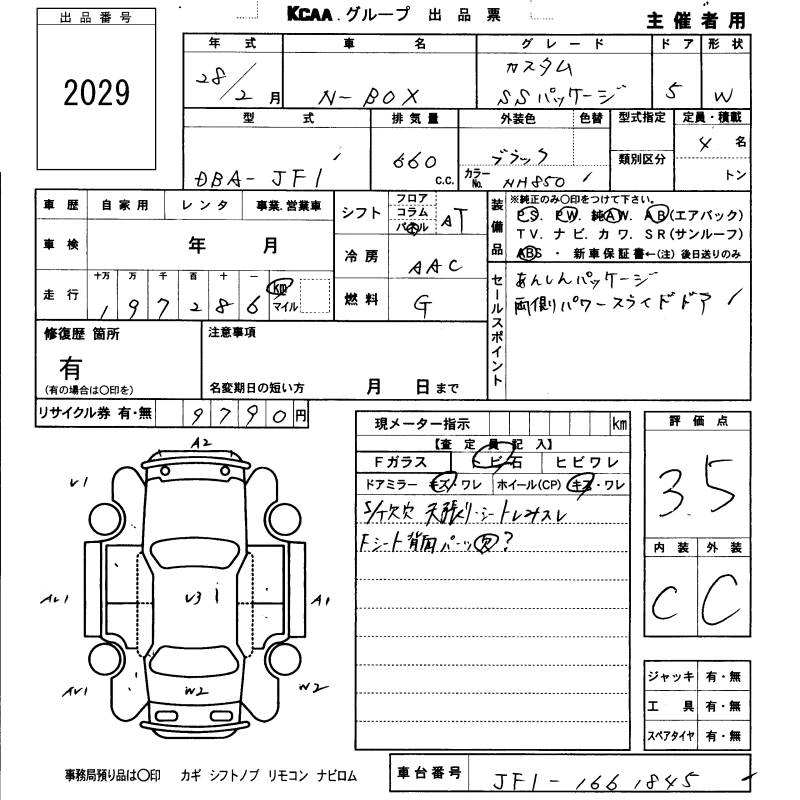 出品番号
2029
KCAA.グループ 出品票
主催者用
年式 車名 グレード ドア 形状
28/2月 N-BOX カスタム SSパッケージ 5 W
型式 排気量 外装色 色替 型式指定 定員・積載
DBA-JF1 660 C.C. ブラック 4名
カラーNo. NH850 類別区分 トン
車歴 自家用 レンタ 事業.営業車
車検 年 月
走行 十万 万 千 百 十 一
197286 km マイル
シフト フロア コラム パネル AT
冷房 AAC
燃料 G
装備品 ※純正のみ〇印をつけて下さい。
PS. PW. 純AW. AB(エアバック)
TV. ナビ. カワ. SR(サンルーフ)
ABS ・ 新車保証書←(注) 後日送りのみ
セールスポイント あんしんパッケージ
両側パワースライドドア
修復歴 箇所
有
(有の場合は〇印を)
注意事項
名変期日の短い方 月 日まで
リサイクル券 有・無 9790円
現メーター指示 km
【査定員記入】
Fガラス トビ石 ヒビワレ
ドアミラー キズ・ワレ ホイール(CP) キズ・ワレ
S/T欠穴 天張り・シートしみスレ
Fシート背面パーツ欠?
評価点
3.5
内装 外装
C C
ジャッキ 有・無
工具 有・無
スペアタイヤ 有・無
A2
V1
AV1
V3
A1
AV1
W2
W2
事務局預り品は〇印 カギ シフトノブ リモコン ナビロム
車台番号 JF1-1661845